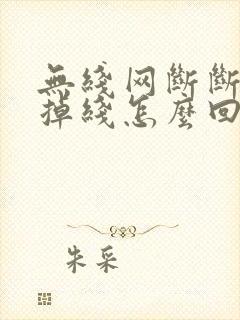 無綫网斷斷
掉綫怎麼回
朱采